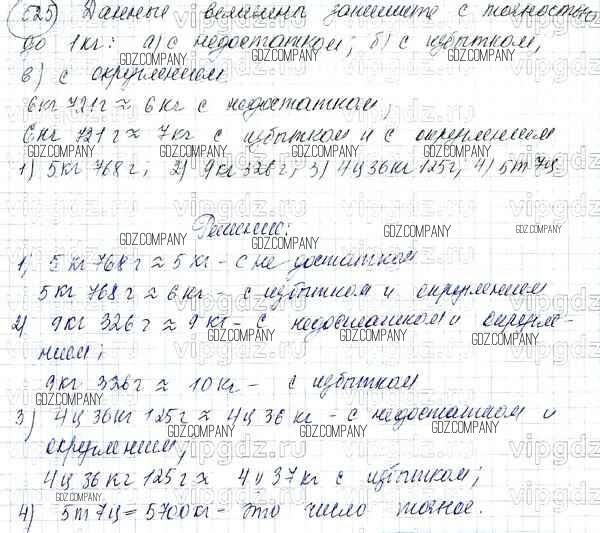 525) Данные величины запишите с точностью
до 1кг: а) с недостатком; б) с избытком,
в) с округлением
6кг 721г ≈ 6кг с недостатком,
6кг 721г ≈ 7кг с избытком и с округлением
1) 5кг 768г; 2) 9кг 326г; 3) 4ц 36кг 125г; 4) 5т 7ц
Решение:
1) 5 кг 768 г ≈ 5 кг - с недостатком
5 кг 768 г ≈ 6 кг - с избытком и округлением
2) 9кг 326 г ≈ 9 кг - с недостатком и округле-
нием;
9кг 326г ≈ 10кг - с избытком
3) 4ц 36кг 125г ≈ 4ц 36 кг - с недостатком и
округлением;
4ц 36кг 125г ≈ 4ц 37кг с избытком;
4) 5т 7ц = 5700кг - это число точное.